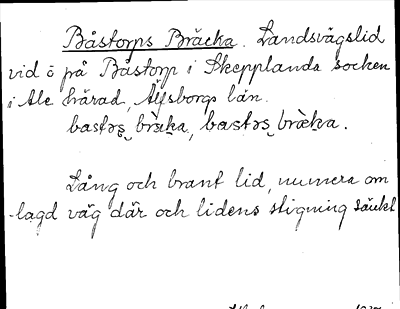 Båstorps Bräcka. Landsvägslid
vid ö på Båstorp i Skepplanda socken
i Ale härad, Älfsborgs län.
bastǝs bràka, bastǝs brὲka.
Lång och brant lid, numera om
lagd väg där och lidens stigning sänkt